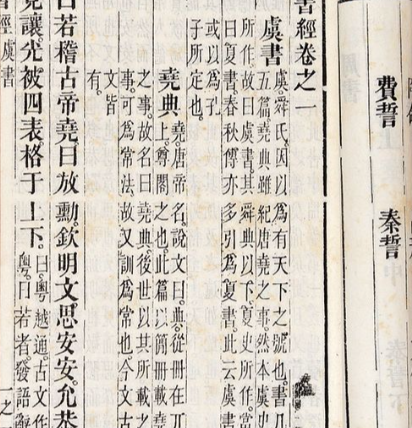 費誓
秦誓
書經卷之一
虞書
虞。舜氏。因以為有天下之號也。書凡
五篇。堯典雖紀唐堯之事。然本虞史
所作。故曰虞書。其舜典以下。夏史所作。當
曰夏書。春秋傳亦多引為夏書。此云虞書
或以為孔
子所定也。
堯典
堯。唐帝名。說文曰。典。從冊在丌
上。尊閣之也。此篇以簡冊載堯
之事。故名曰堯典。後世以其所載之
事。可為常法。故又訓為常也。今文古
文皆
有。
曰若稽古帝堯曰放勳。欽明文思安安。允恭
克讓。光被四表。格于上下。
曰。粵。越通。古文作
粵。曰若者。發語辭
經虞書
一之